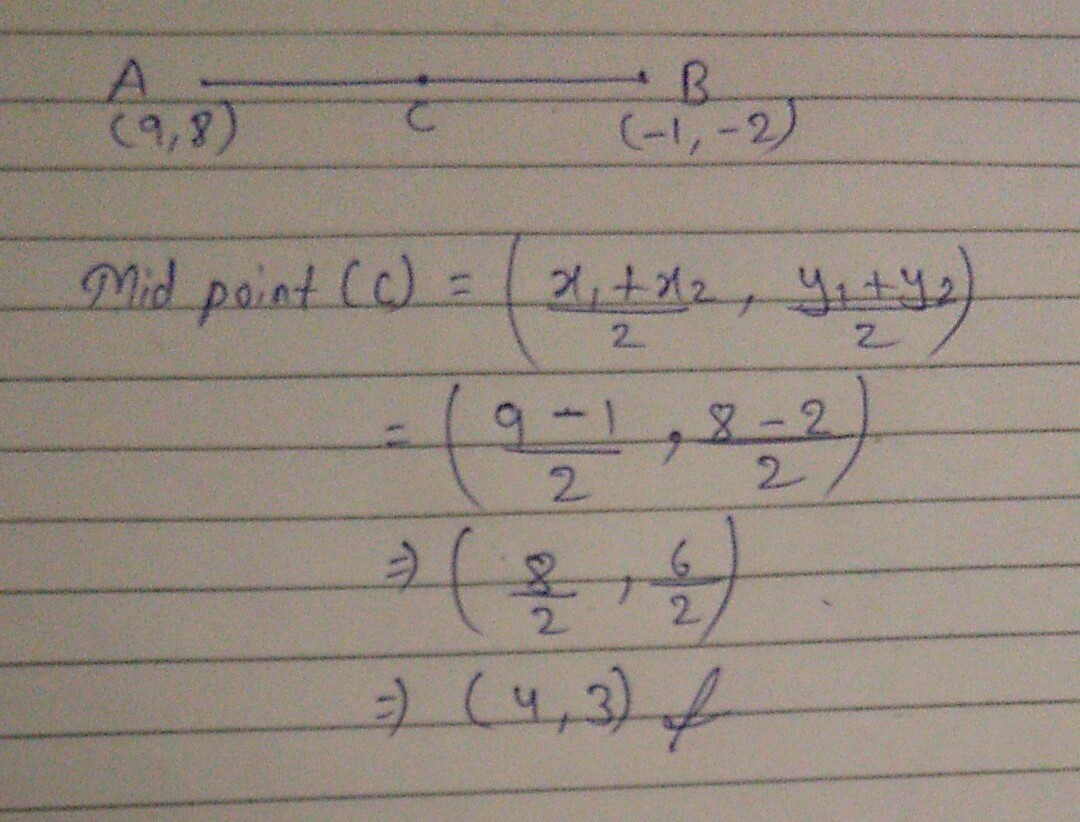 A B
(9,8) C (-1,-2)
Mid point (C) = ( x₁+x₂/2 , y₁+y₂/2 )
= ( 9-1/2 , 8-2/2 )
⇒ ( 8/2 , 6/2 )
⇒ (4,3)